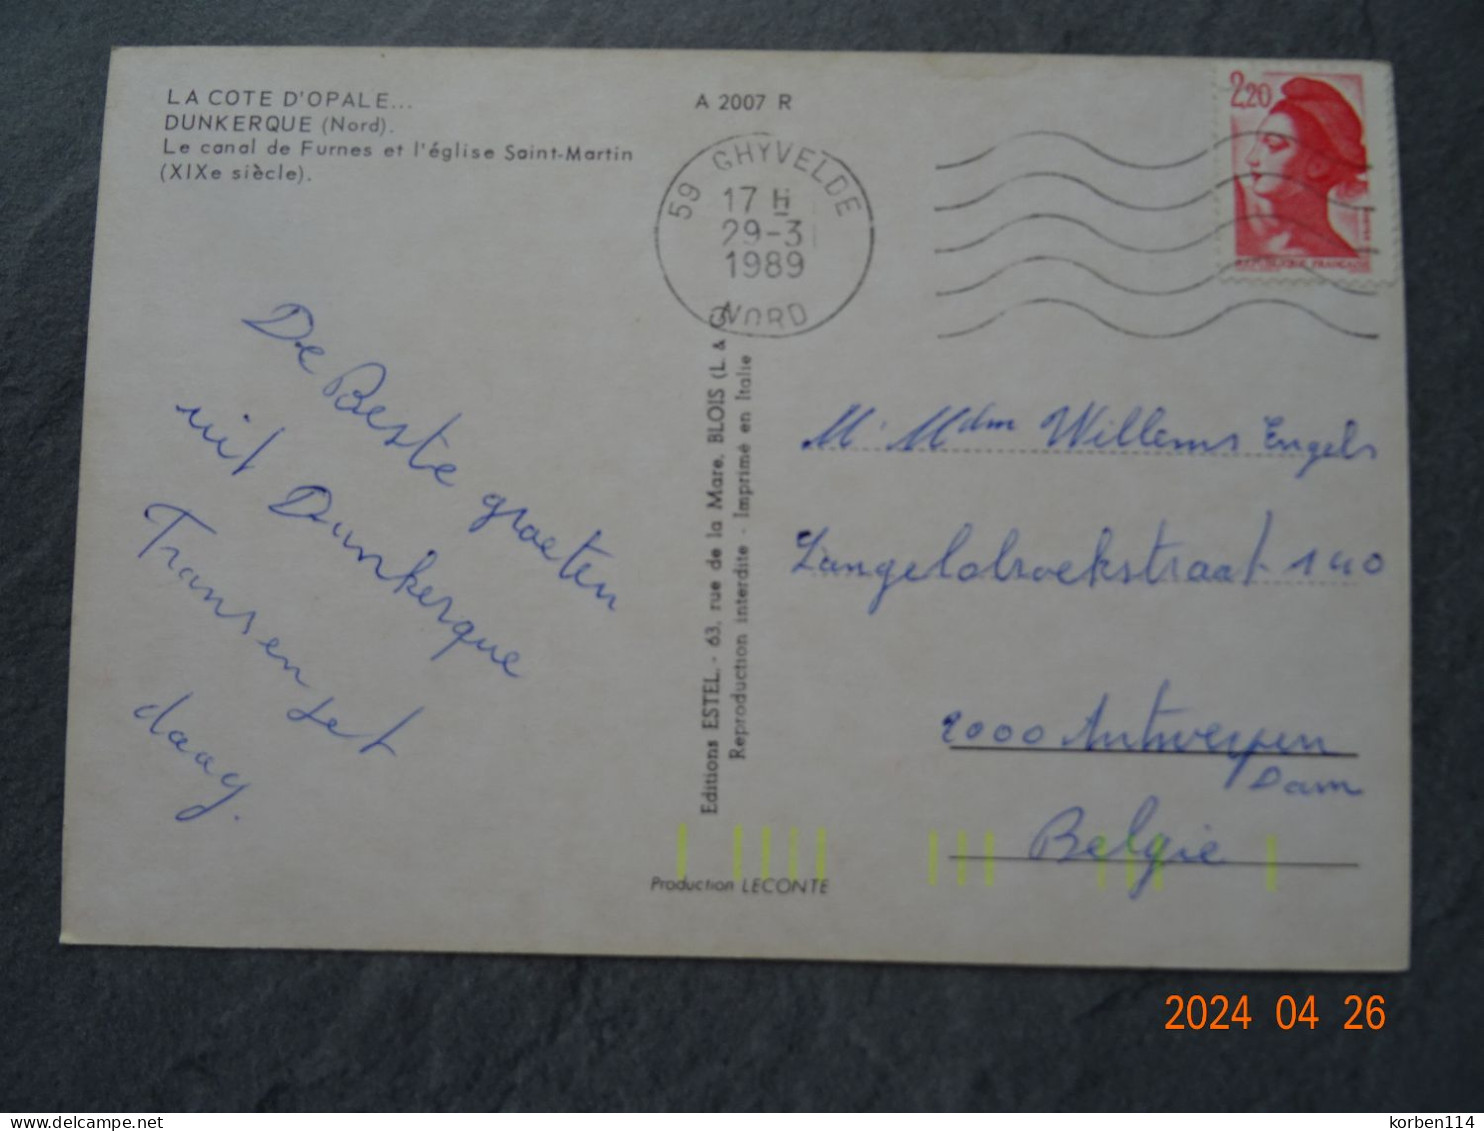 LA COTE D'OPALE...
DUNKERQUE (Nord).
Le canal de Furnes et l'église Saint-Martin
(XIXe siècle).
A 2007 R
59 GHYVELDE
17 H
29-3
1989
NORD
2,20
REPUBLIQUE FRANÇAISE
De Beste groeten
uit Dunkerque
Frans en Jet
daag.
Editions ESTEL.- 63, rue de la Mare, BLOIS (L. & C
Reproduction interdite - Imprimé en Italie
Production LECONTE
Mr Mdm Willems Engels
Langelobroekstraat 140
2000 Antwerpen
Dam
Belgie
2024 04 26
korben114